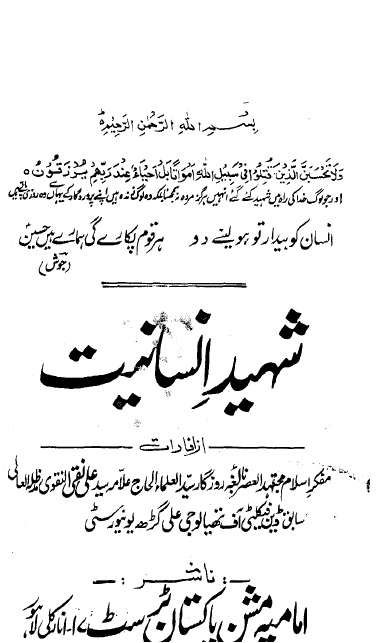 بسم اللہ الرحمن الرحیم
وَلَا تَحْسَبَنَّ الَّذِينَ قُتِلُوا فِي سَبِيلِ اللهِ أَمْوَاتًا بَلْ أَحْيَاءٌ عِنْدَ رَبِّهِمْ يُرْزَقُونَ ٥
اور جو لوگ خدا کی راہ میں شہید کئے گئے انہیں ہرگز مردہ نہ سمجھنا بلکہ وہ لوگ زندہ ہیں اپنے پروردگار کے یہاں سے وہ روزی پاتے ہیں
انسان کو بیدار تو ہو لینے دو ہر قوم پکارے گی ہمارے ہیں حسینؑ
(جوش)
شہیدِ انسانیت
از افادات
مفکر اسلام مجتہد العصر نابغہ روزگار سید العلماء الحاج علامہ سید علی نقی النقوی مدظلہ العالی
سابق ڈین فیکلٹی آف تھیالوجی علی گڑھ یونیورسٹی
-: ناشر :-
امامیہ مشن پاکستان ٹرسٹ ۱۷-انارکلی لاہور